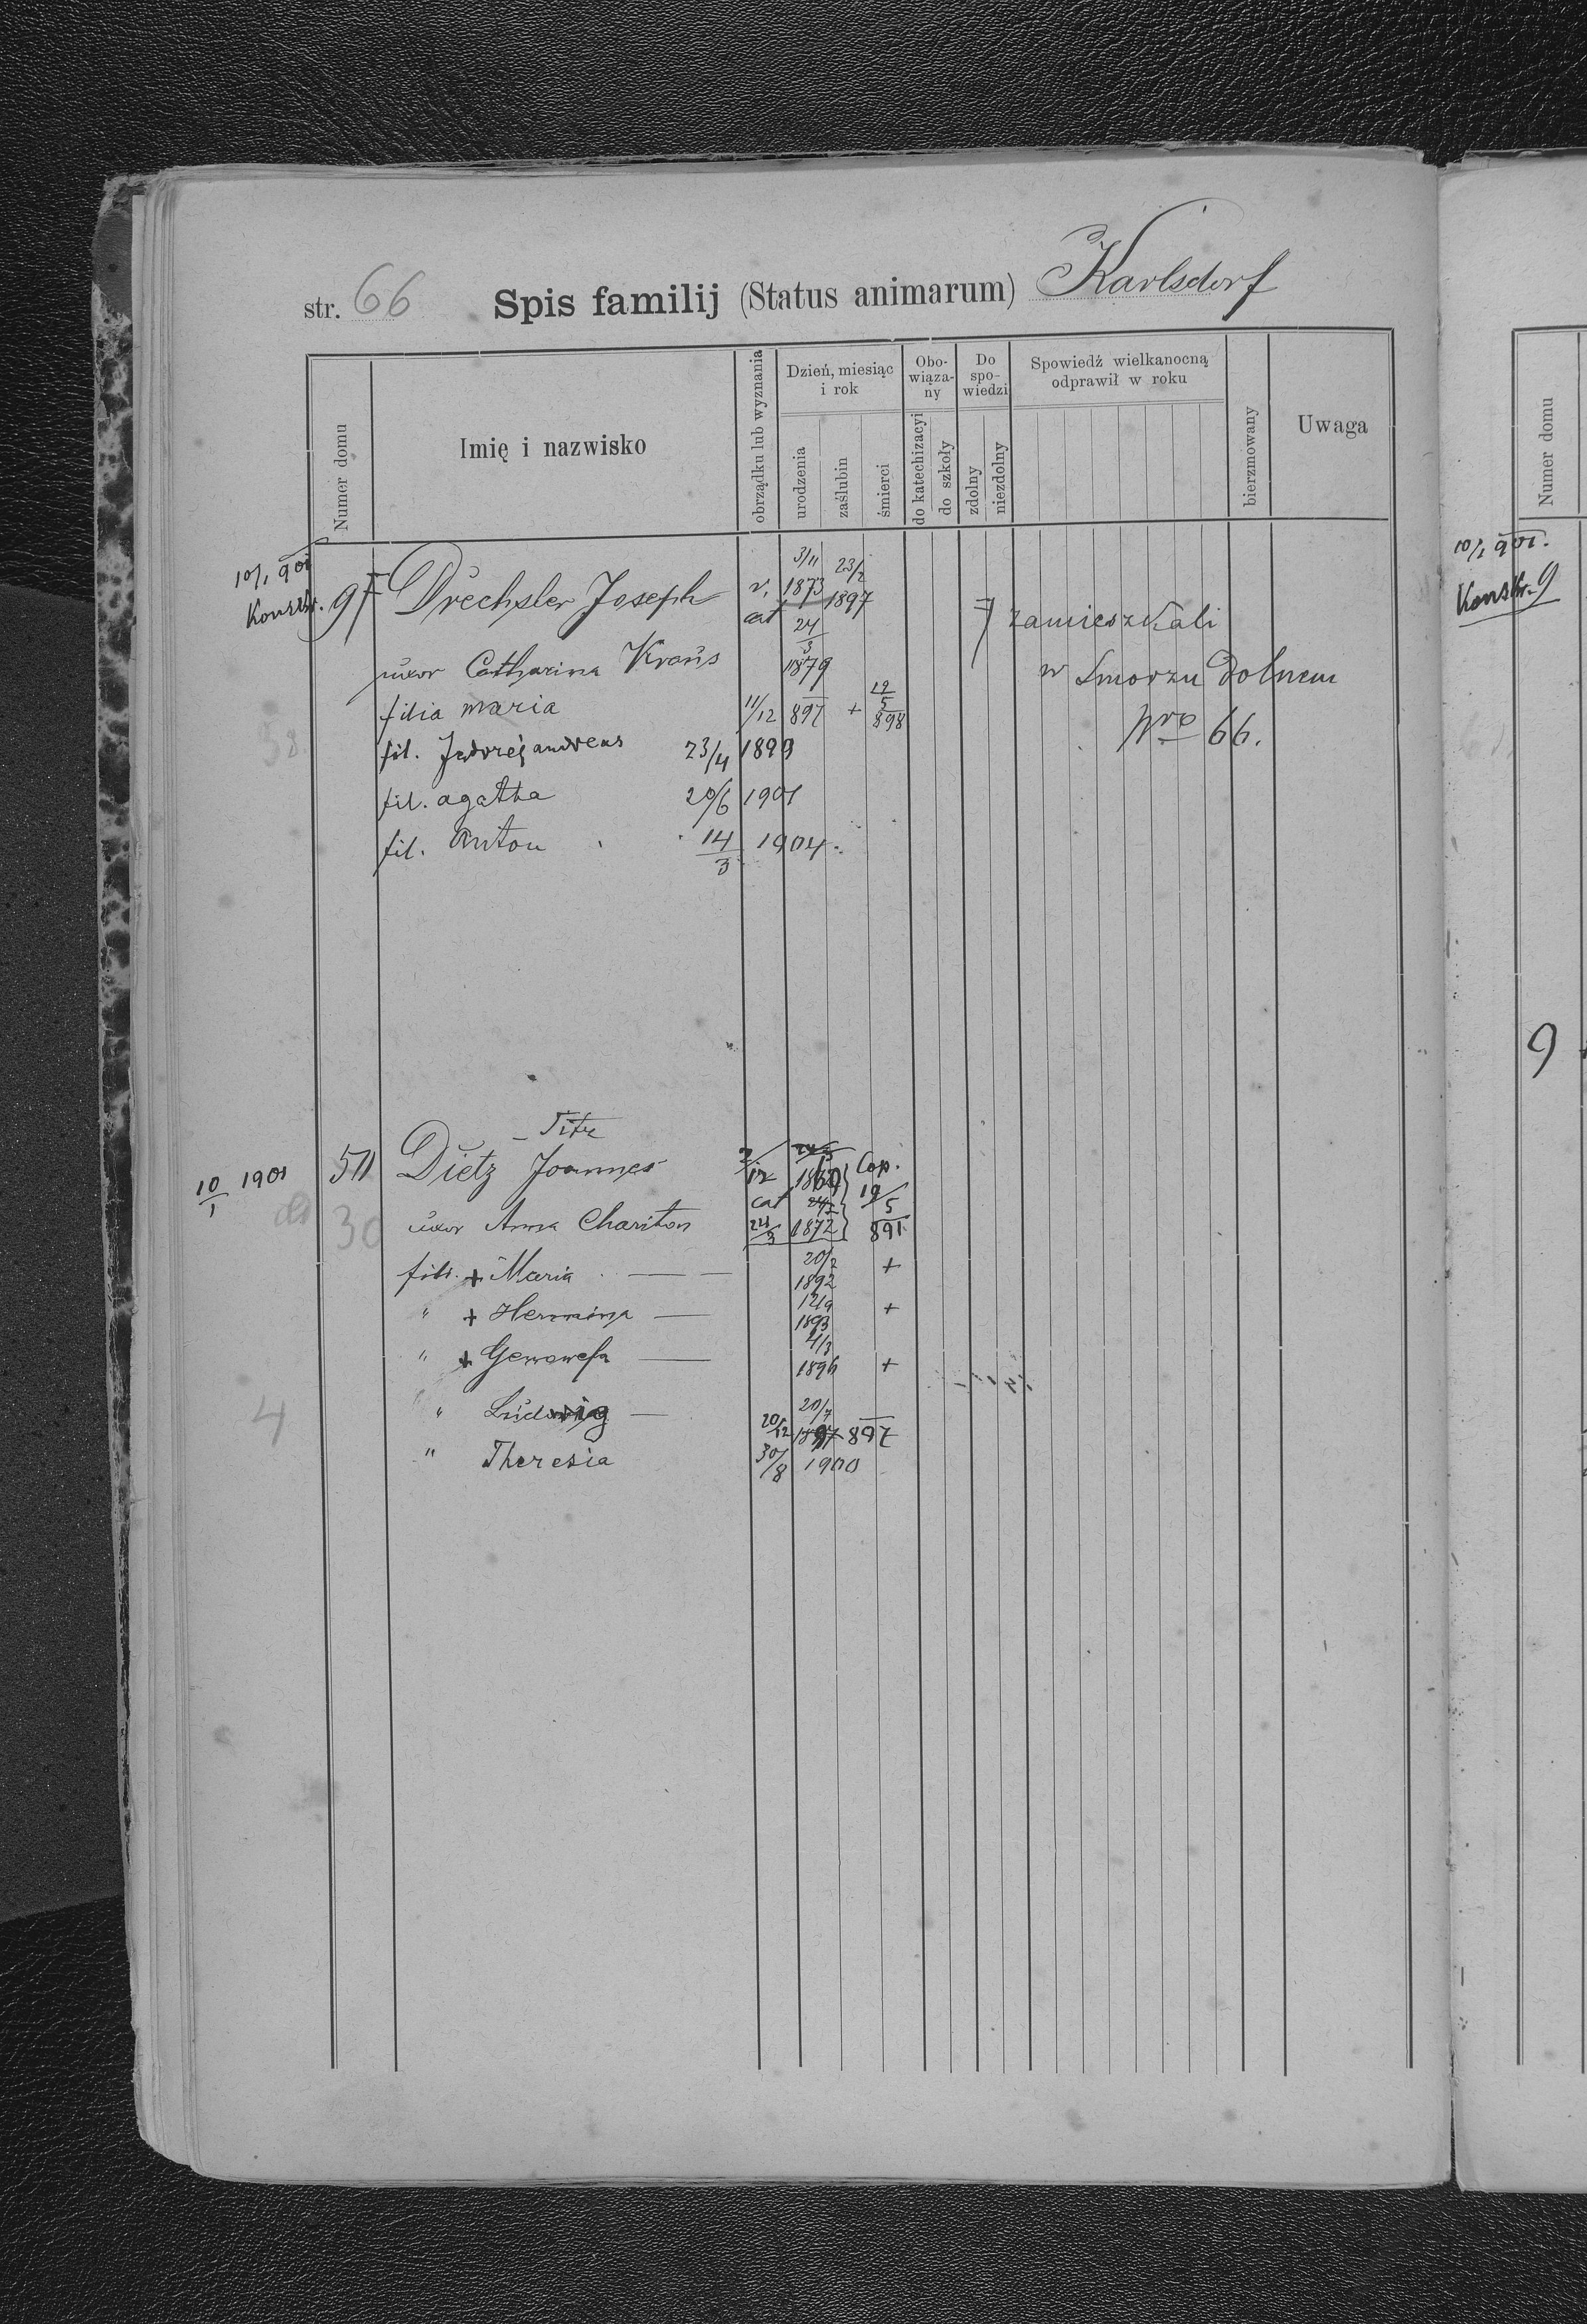 str. 66 Spis familij (Status animarum) Karlsdorf
Numer domu
Imię i nazwisko
obrządku lub wyznania
Dzień, miesiąc i rok
urodzenia
zaślubin
śmierci
Obo-wiąza-ny
do katechizacyi
do szkoły
Do spo-wiedzi
zdolny
niezdolny
Spowiedź wielkanocną odprawił w roku
bierzmowany
Uwaga
10/1 901
Konskr. 9 Drechsler Joseph r. cat 3/11 1873 23/2 1897
uxor Catharina Kraus 24/3 1879
zamieszkali
w Smorzu Dolnem
Nro 66.
filia maria 11/12 897 + 12/5 898
fil. Jędrzej andreas 23/4 1899
fil. agatha 20/6 1901
fil. Anton 14/3 1904
Titz
10/1 1901 Dietz Joannes cat Cop. 19/5 891
30 uxor Anna Chariton 24/3 1872
fili. + Maria 20/2 1892 +
" + Hermina 12/9 1893 +
" + Genowefa 4/3 1896 +
4 " Ludwig 20/12 897
" Theresia 30/8 1900
Numer domu
10/1 901.
Konskr. 9
9